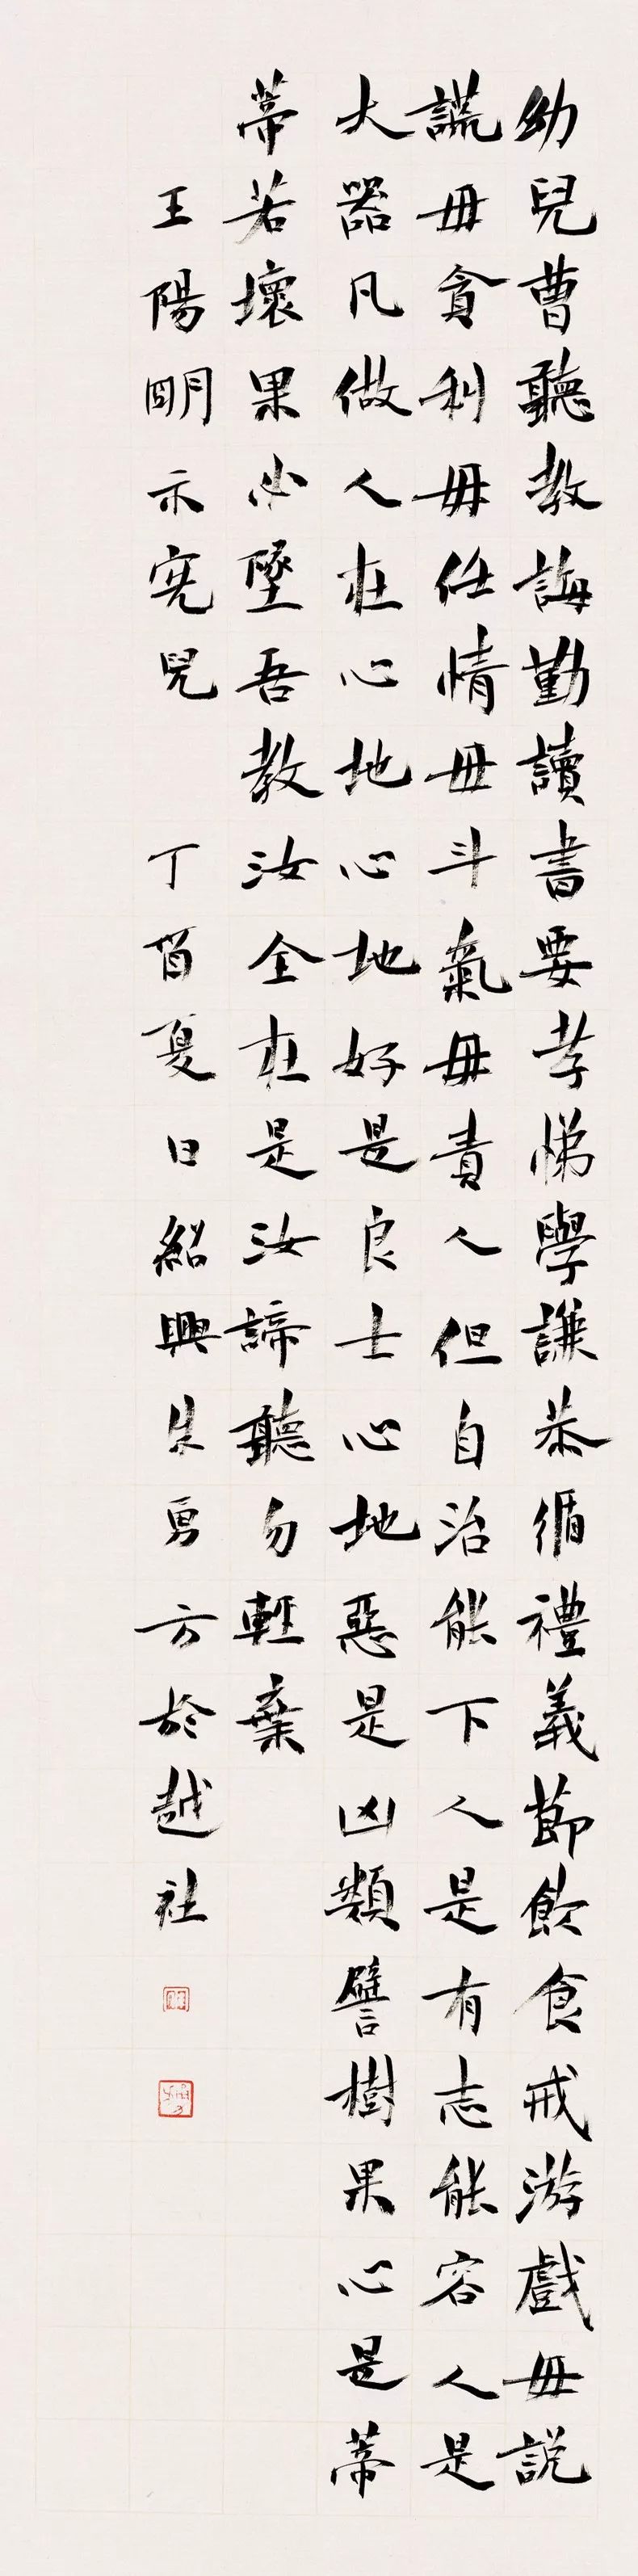 幼兒曹聽教誨勤讀書要孝悌學謙恭循禮義節飲食戒游戲毋説
謊毋貪利毋任情毋斗氣毋責人但自治能下人是有志能容人是
大器凡做人在心地心地好是良士心地惡是凶類譬樹果心是蒂
蒂若壞果必墜吾教汝全在是汝諦聽勿輕棄
王陽明示憲兒 丁酉夏日紹興朱勇方於越社